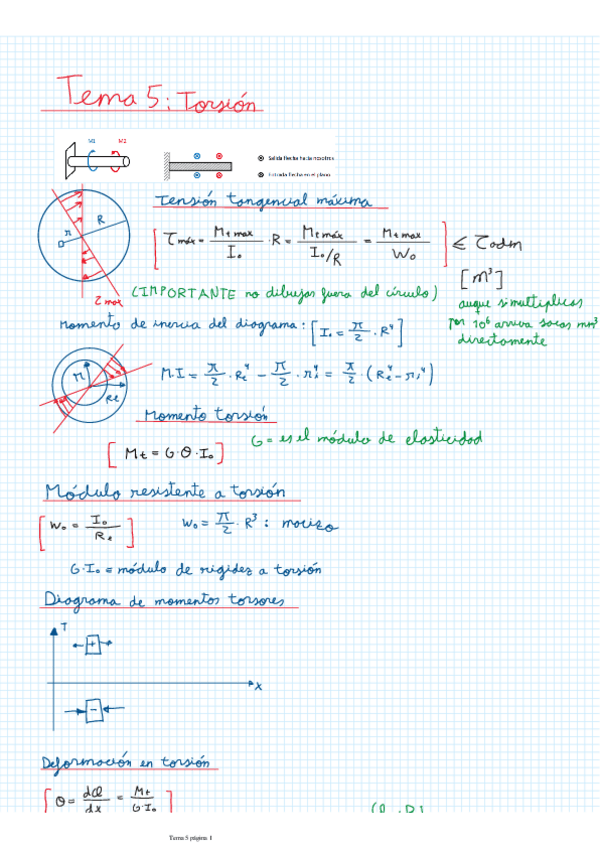 Tema 5: Torsión
M1 M2
⊙ Salida flecha hacia nosotros
⊗ Entrada flecha en el plano
Tensión tangencial máxima
[τmáx = Mt max / I₀ · R = Mt máx / I₀/R = Mt max / W₀] ≤ τadm
[m³]
r R
τ max (IMPORTANTE no dibujos fuera del círculo)
auque si multiplicas
por 10⁶ arriva sacas mm³
directamente
Momento de inercia del diagrama: [I₀ = π/2 · R⁴]
M.I = π/2 · Re⁴ - π/2 · ri⁴ = π/2 · (Re⁴ - ri⁴)
ri Re
Momento torsión
[Mt = G·θ·I₀]
G = es el módulo de elasticidad
Módulo resistente a torsión
[W₀ = I₀ / Re] W₀ = π/2 · R³ : macizo
G·I₀ = módulo de rigidez a torsión
Diagrama de momentos torsores
T
+
x
-
Deformación en torsión
[θ = dφ/dx = Mt / G·I₀]
Tema 5 página 1